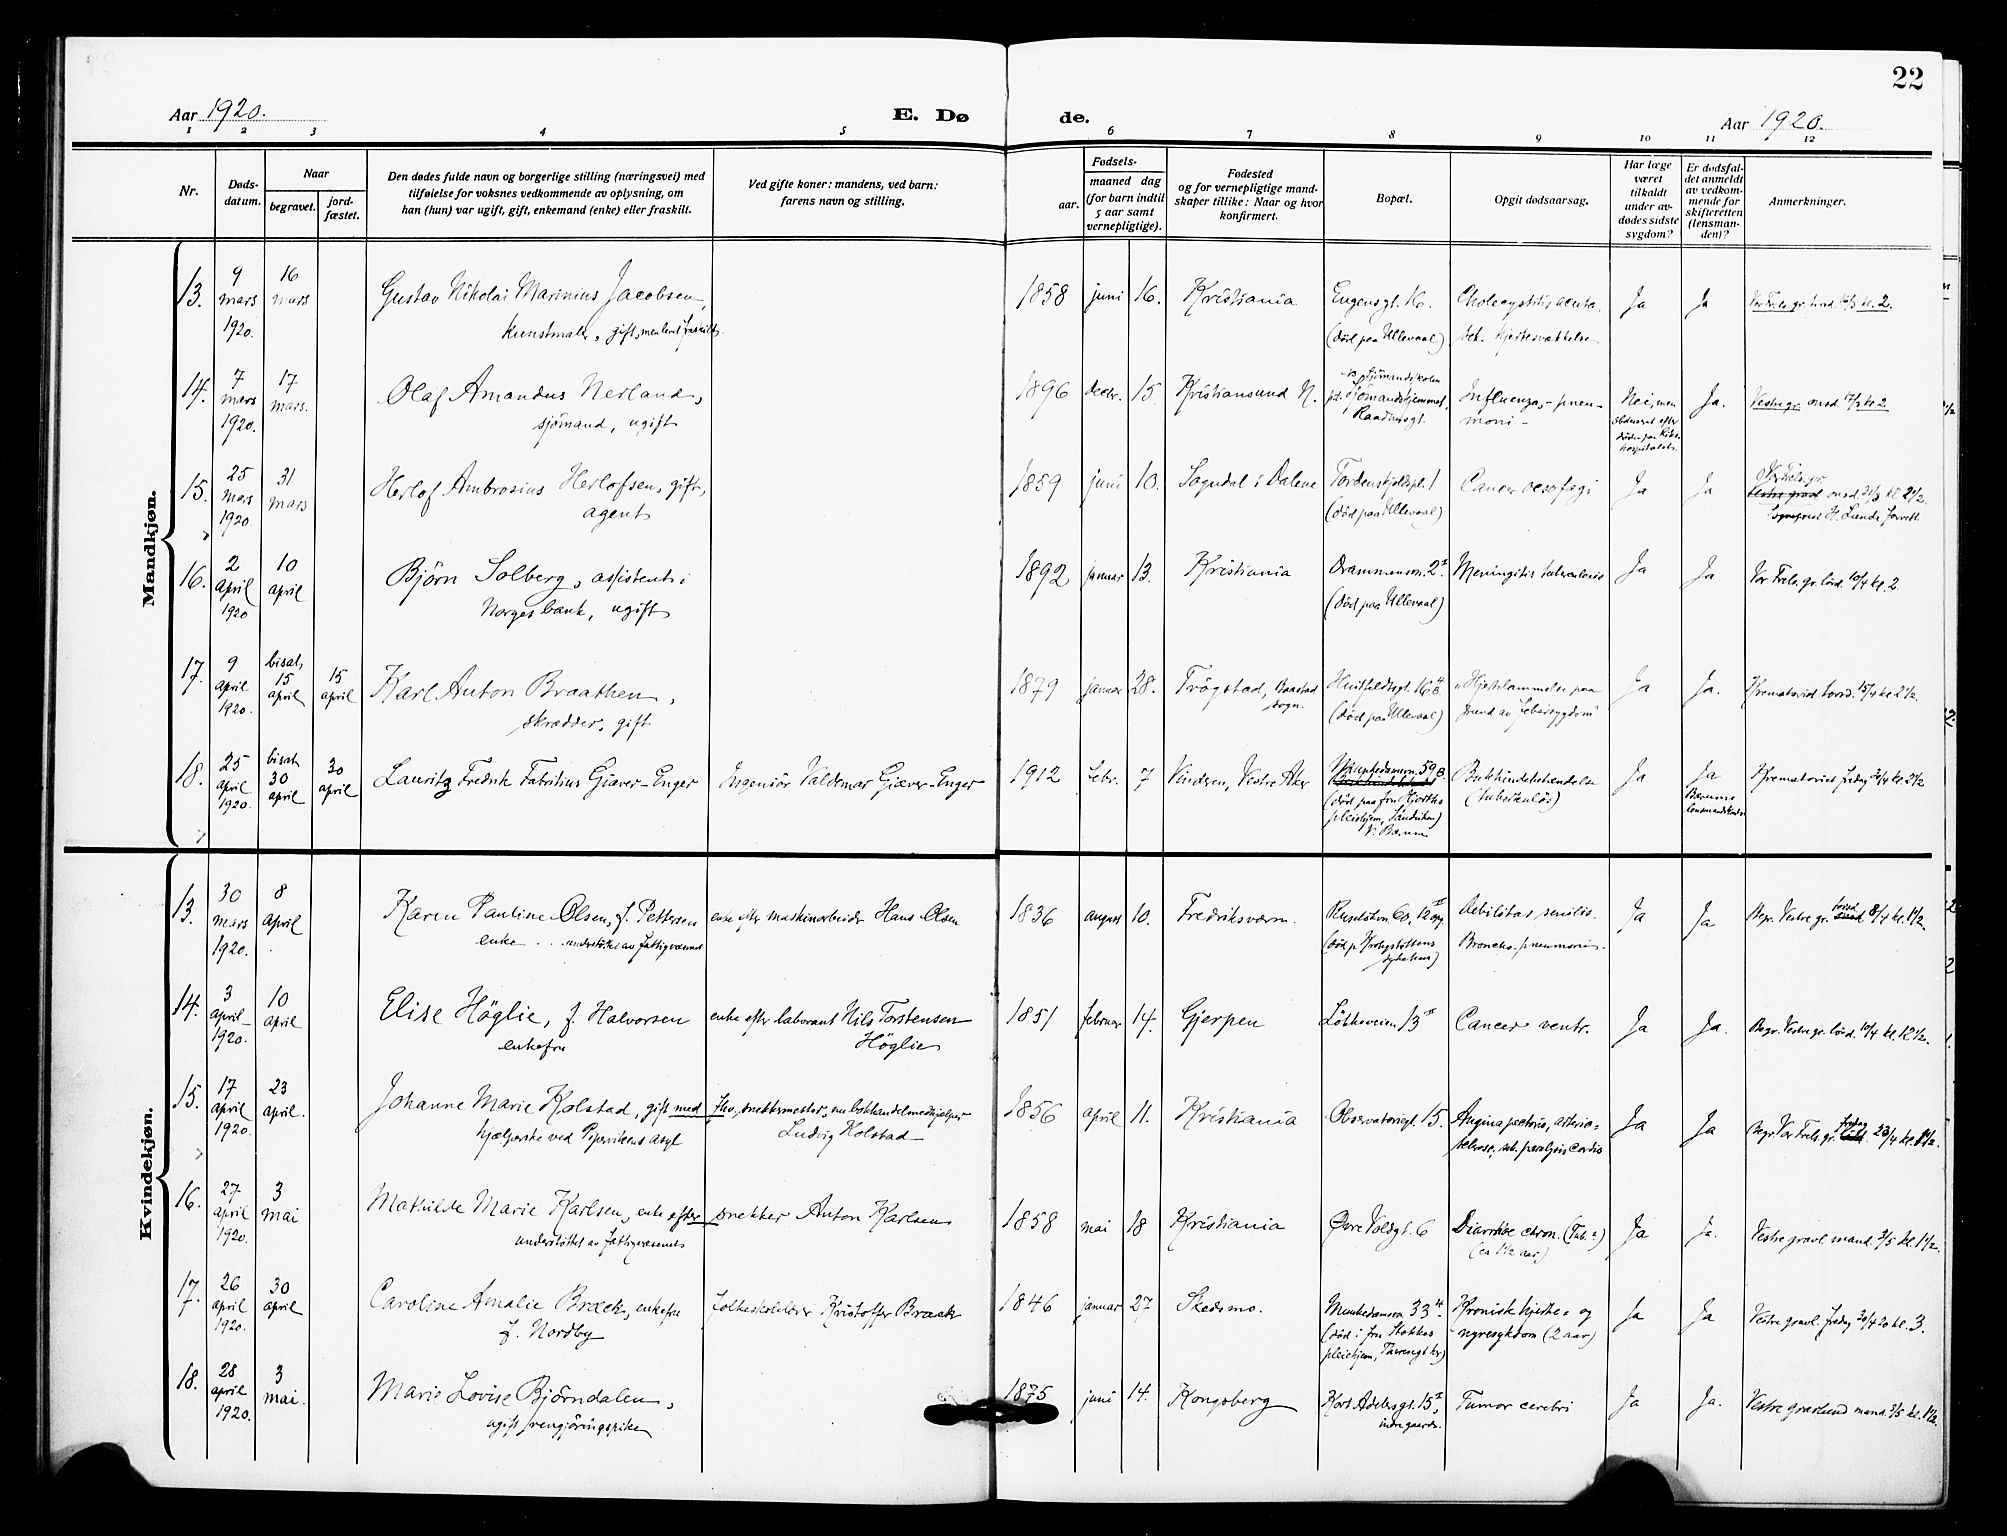 22
Aar 1920.
E. Dø
de.
Aar 1920.
1 2 3 4 5 6 7 8 9 10 11 12
Nr.
Døds-
datum.
Naar
begravet.
jord-
fæstet.
Den dødes fulde navn og borgerlige stilling (næringsvei) med
tilføielse for voksnes vedkommende av oplysning, om
han (hun) var ugift, gift, enkemand (enke) eller fraskilt.
Ved gifte koner: mandens, ved barn:
farens navn og stilling.
Fødsels-
aar.
maaned dag
(for barn indtil
5 aar samt
vernepligtige).
Fødested
og for vernepligtige mand-
skaper tillike: Naar og hvor
konfirmert.
Bopæl.
Opgit dødsaarsag.
Har læge
været
tilkaldt
under av-
dødes sidste
sygdom?
Er dødsfal-
det anmeldt
av vedkom-
mende for
skifteretten
(lensman-
den)?
Anmerkninger.
Mandkjøn.
13.
9
mars
1920.
16
mars
Gustav Nikolai Marinius Jacobsen,
kunstmaler, gift, men levet fraskilt.
1858 juni 16.
Kristiania
Eugensgt. 16.
(död paa Ullevaal)
Cholecystitis acuta.
Ja
Ja
Vor Frels. gr. onsd. 16/3 kl. 2.
14.
7
mars
1920.
17
mars.
Olaf Amandus Nerland,
sjömand, ugift
1896 decbr. 15.
Kristiansund N.
Sjömandsskolen
pt. Sjömandshjemmet,
Raadhusgt.
Influenza, - pneu-
moni -
Nei, men
obduceret efter
döden paa Riks-
hospitalet.
Ja.
Vestre gr. onsd. 17/3 kl. 2
15.
25
mars
1920.
31
mars
Herlof Ambrosius Herlofsen, gift,
agent
1859 juni 10.
Sogndal i Dalene
Tordenskjoldspl. 1
(död paa Ullevaal)
Cancer oesofagi
Ja
Ja
Vor Frels. gr.
Vestre grav. onsd. 31/3 kl. 2 1/2.
Sogneprest H. Lunde forrett.
16.
2
april
1920
10
april
Björn Solberg, assistent i
Norges bank, ugift
1892 januar 13.
Kristiania
Drammensvn. 2 I
(död paa Ullevaal)
Meningitis tuberculosis
Ja
Ja
Vor Frels. gr. lörd. 10/4 kl. 2.
17.
9
april
1920.
bisat,
15
april
15
april
Karl Anton Braathen,
skrædder, gift
1879 januar 28.
Trögstad, Baastad
sogn.
Huitfeldtsgt. 16 4
(död paa Ullevaal)
"Hjertelammelse paa
grund av febersygdom"
Ja
Ja.
Krematoriet torsd. 15/4 kl. 2 1/2.
18.
25
april
1920.
bisat
30
april
30
april
Lauritz Fredrik Fabritius Giæver-Enger
Ingeniör Valdemar Giæver-Enger
1912 febr. 7
Vindern, Vestre Aker
Munkedamsvn. 59 B.
(död paa fru Hjorths
pleiehjem, Sandviken)
V. Bærum
Bukhindebetændelse
(tuberkulös)
Ja
Ja
Bærums
lensmandskontor
Krematoriet fredag 30/4 kl. 2 1/2
Kvindekjøn.
13.
30
mars
1920.
8
april
Karen Pauline Olsen, f. Pettersen
enke ... understöttet av fattigvæsenet
enke efter maskinarbeider Hans Olsen
1836 august 10.
Fredriksværn.
Ruselökvn. 60, 12 opg.
(död p. Krohgstöttens
sykehus)
Debilitas senilis.
Broncho-pneumonia.
Ja
Ja
Begr. Vestre gr. torsd. 8/4 kl. 1 1/2.
14.
3
april
1920.
10
april
Elise Höglie, f. Halvorsen
enkefru
enke efter laborant Nils Torstensen
Höglie
1851 februar 14.
Gjerpen
Lökkeveien 13 II
Cancer ventr.
Ja
Ja.
Begr. Vestre gr. lörd. 10/4 kl. 12 1/2.
15.
17
april
1920.
23
april.
Johanne Marie Kolstad, gift med
hjælperske ved Pipervikens asyl
fhv. snekkermester, nu bokhandelmedhjælper
Ludvig Kolstad
1856 april 11.
Kristiania
Observatoriegt. 15.
Angina pectoris, arterio-
sclerose, paralysis cordis
Ja
Ja
Begr. Vor Frels. gr. fredag 23/4 kl. 1 1/2.
16.
27
april
1920.
3
mai
Mathilde Marie Karlsen, enke efter
understöttet av fattigvæsenet
snekker Anton Karlsen
1858 mai 18
Kristiania
Övre Voldgt. 6
Diarrhöe chron. (Tub.?)
(ca 1 1/2 aar)
Ja
Ja.
Vestre gravl. mand. 3/5 kl. 1 1/2.
17.
26
april
1920.
30
april
Caroline Amalie Bræck, enkefru
f. Nordby
folkeskolelærer Kristoffer Bræck
1846 januar 27
Skedsmo.
Munkedamsvn. 33 4
(död i fru Stokkes
pleiehjem, Theresesgt.)
Kronisk hjerte- og
nyresykdom (2 aar)
Ja
Ja
Vestre gravl. fredag 30/4 20 kl. 3.
18.
28
april
1920.
3
mai.
Marie Lovise Björndalen,
ugift rengjöringspike
1875 juni 14.
Kongsberg
Kort Adelersgt. 15 I,
indre gaarden.
Tumor cerebri
Ja
Ja.
Vestre gravlund mand. 3/5 kl. 1 1/2.